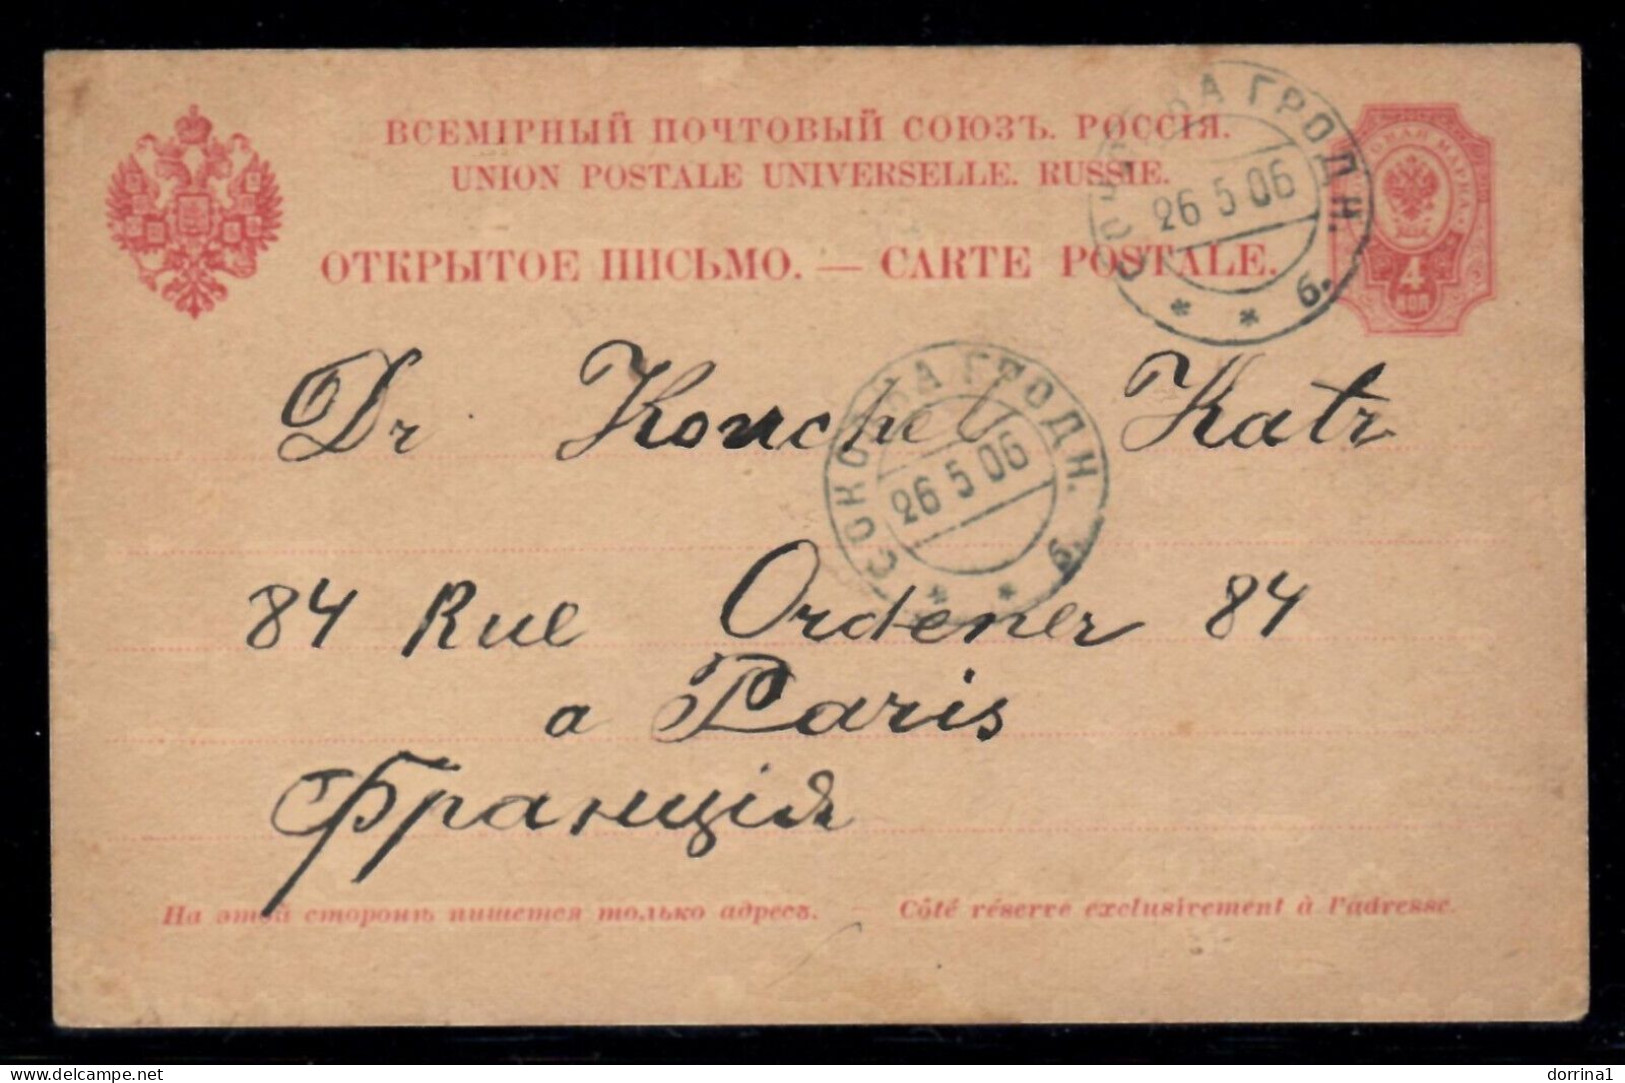 ВСЕМІРНЫЙ ПОЧТОВЫЙ СОЮЗЪ. РОССІЯ.
UNION POSTALE UNIVERSELLE. RUSSIE.
ОТКРЫТОЕ ПИСЬМО. — CARTE POSTALE.
МАРКА
4
КОП
ГРОДН. б.
26 5 06
Dr Konchel Katz
СОКОЛКА ГРОДН. б.
26 5 06
84 Rue Ordener 84
a Paris
Франція
На этой сторонѣ пишется только адресъ. — Côté réservé exclusivement à l'adresse.
delcampe.net
dorrina1